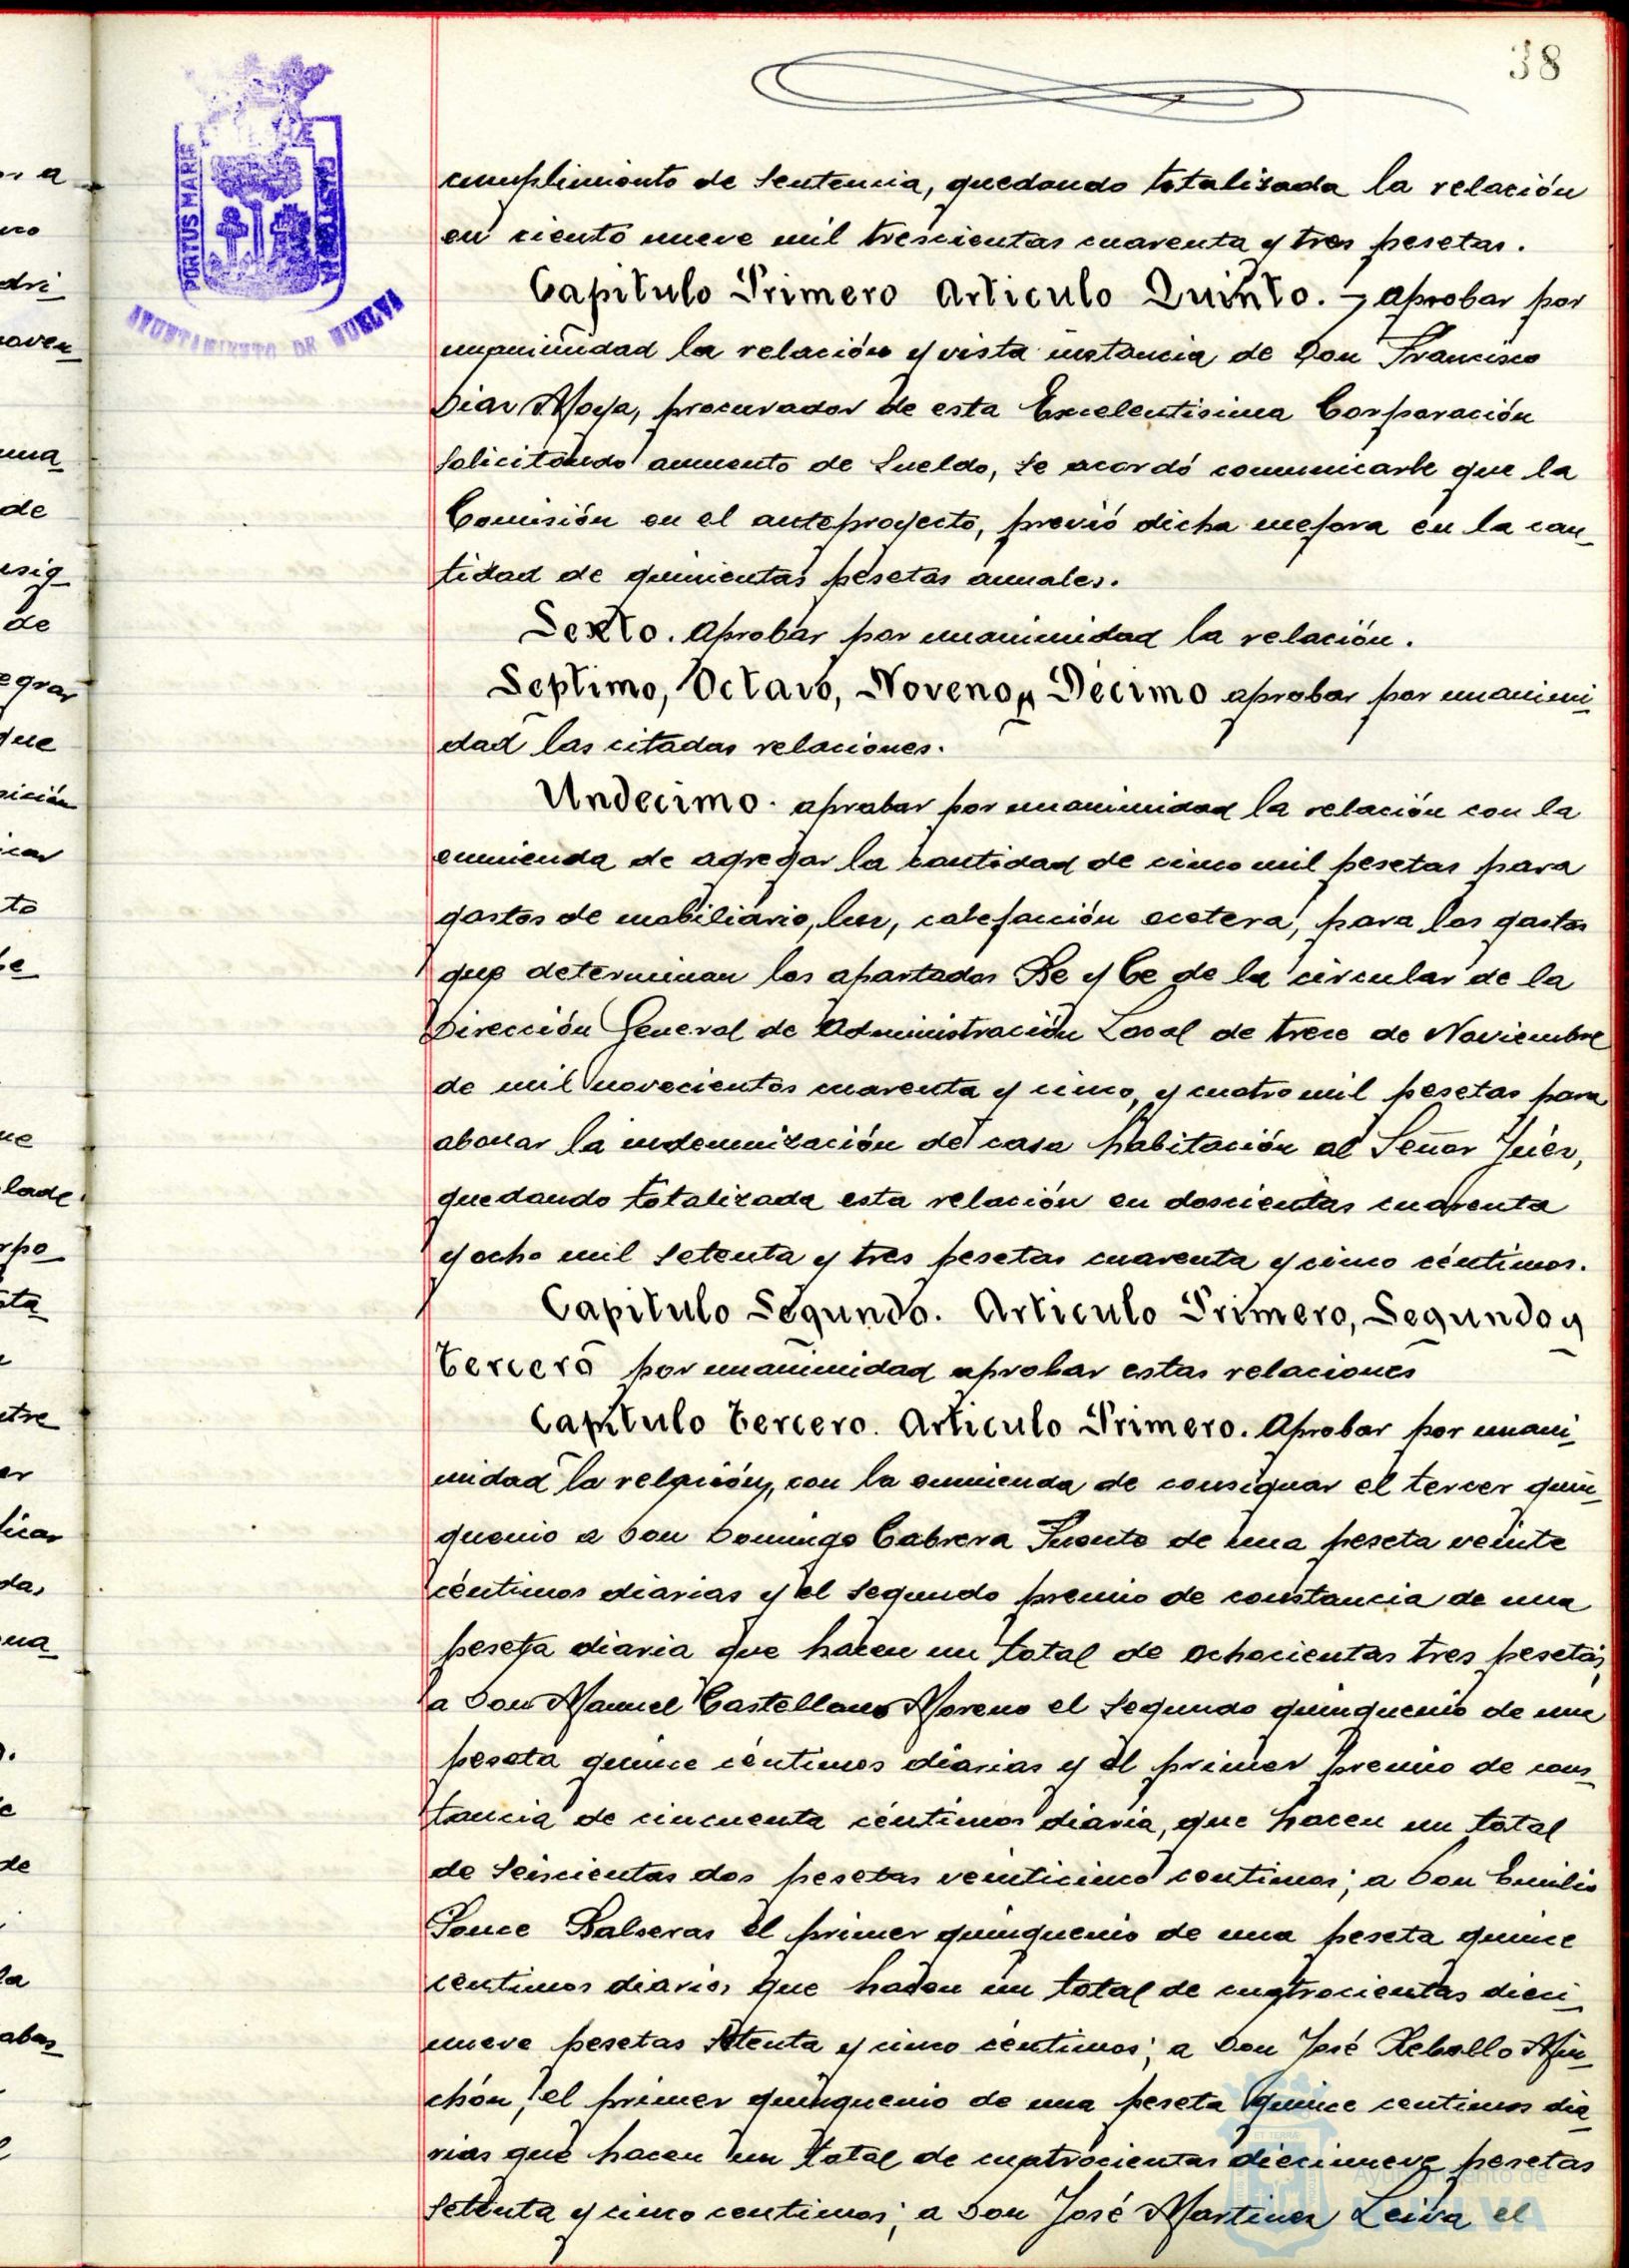 38
PORTUS MARIS
AYUNTAMIENTO DE HUELVA
cumplimiento de Sentencia, quedando totalizada la relación
en ciento nueve mil trescientas cuarenta y tres pesetas.
Capitulo Primero Articulo Quinto. aprobar por
unanimidad la relación y vista instancia de Don Francisco
Diaz Moya, procurador de esta Excelentisima Corporación
solicitando aumento de Sueldo, se acordó comunicarle que la
Comisión en el anteproyecto, previó dicha mejora en la can_
tidad de quinientas pesetas anuales.
Sexto. Aprobar por unanimidad la relación.
Septimo, Octavo, Noveno y Décimo aprobar por unanimi_
dad las citadas relaciones.
Undecimo. aprobar por unanimidad la relación con la
enmienda de agregar la cantidad de cinco mil pesetas para
gastos de mobiliario, luz, calefacción ecetera, para los gastos
que determinan los apartados Be y Ce de la circular de la
Dirección General de Administración Local de trece de Noviembre
de mil novecientos cuarenta y cinco, y cuatro mil pesetas para
abonar la indemnización de casa habitación al Señor Juez,
quedando totalizada esta relación en doscientas cuarenta
y ocho mil setenta y tres pesetas cuarenta y cinco céntimos.
Capitulo Segundo. Articulo Primero, Segundo y
Tercero por unanimidad aprobar estas relaciones
Capitulo Tercero. Articulo Primero. Aprobar por unani_
midad la relación, con la enmienda de consignar el tercer quin_
quenio a Don Domingo Cabrera Puente de una peseta veinte
céntimos diarias y el segundo premio de constancia de una
peseta diaria que hacen un total de ochocientas tres pesetas,
a Don Manuel Castellano Moreno el segundo quinquenio de una
peseta quince céntimos diarias y el primer premio de cons_
tancia de cincuenta céntimos diaria, que hacen un total
de Seiscientas dos pesetas veinticinco centimos; a Don Emilio
Ponce Balseras el primer quinquenio de una peseta quince
centimos diarios que hacen un total de cuatrocientas dieci_
nueve pesetas setenta y cinco céntimos; a Don José Rebollo Min_
chón, el primer quinquenio de una peseta quince centimos dia_
rias que hacen un total de cuatrocientas diecinueve pesetas
setenta y cinco centimos; a Don José Martinez Leiva el
Ayuntamiento de
HUELVA